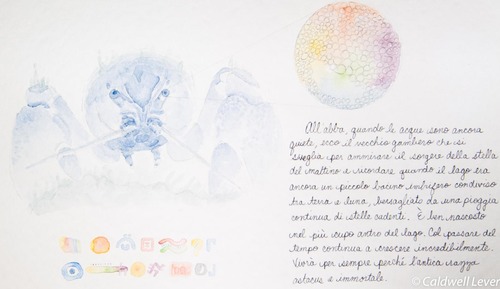 All'abba, quando le acque sono ancora
quiete, ecco il vecchio gambero che si
sveglia per ammirare il sorgere della stella
del mattino e ricordare quando il lago era
ancora un piccolo bacino imbrifero condiviso
tra terra e luna, bersagliato da una pioggia
continua di stelle cadenti. È ben nascosto
nel più cupo antro del lago. Col passare del
tempo continua a crescere incredibilmente.
Vivrà per sempre perché l'antica razza
astacus è immortale.
© Caldwell Lever